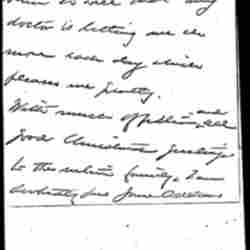 doctor is letting me do
more each day which
pleases me greatly.
With much affection, and all
good Christmas greetings
to the entire family, I am
devotedly, Jane Addams